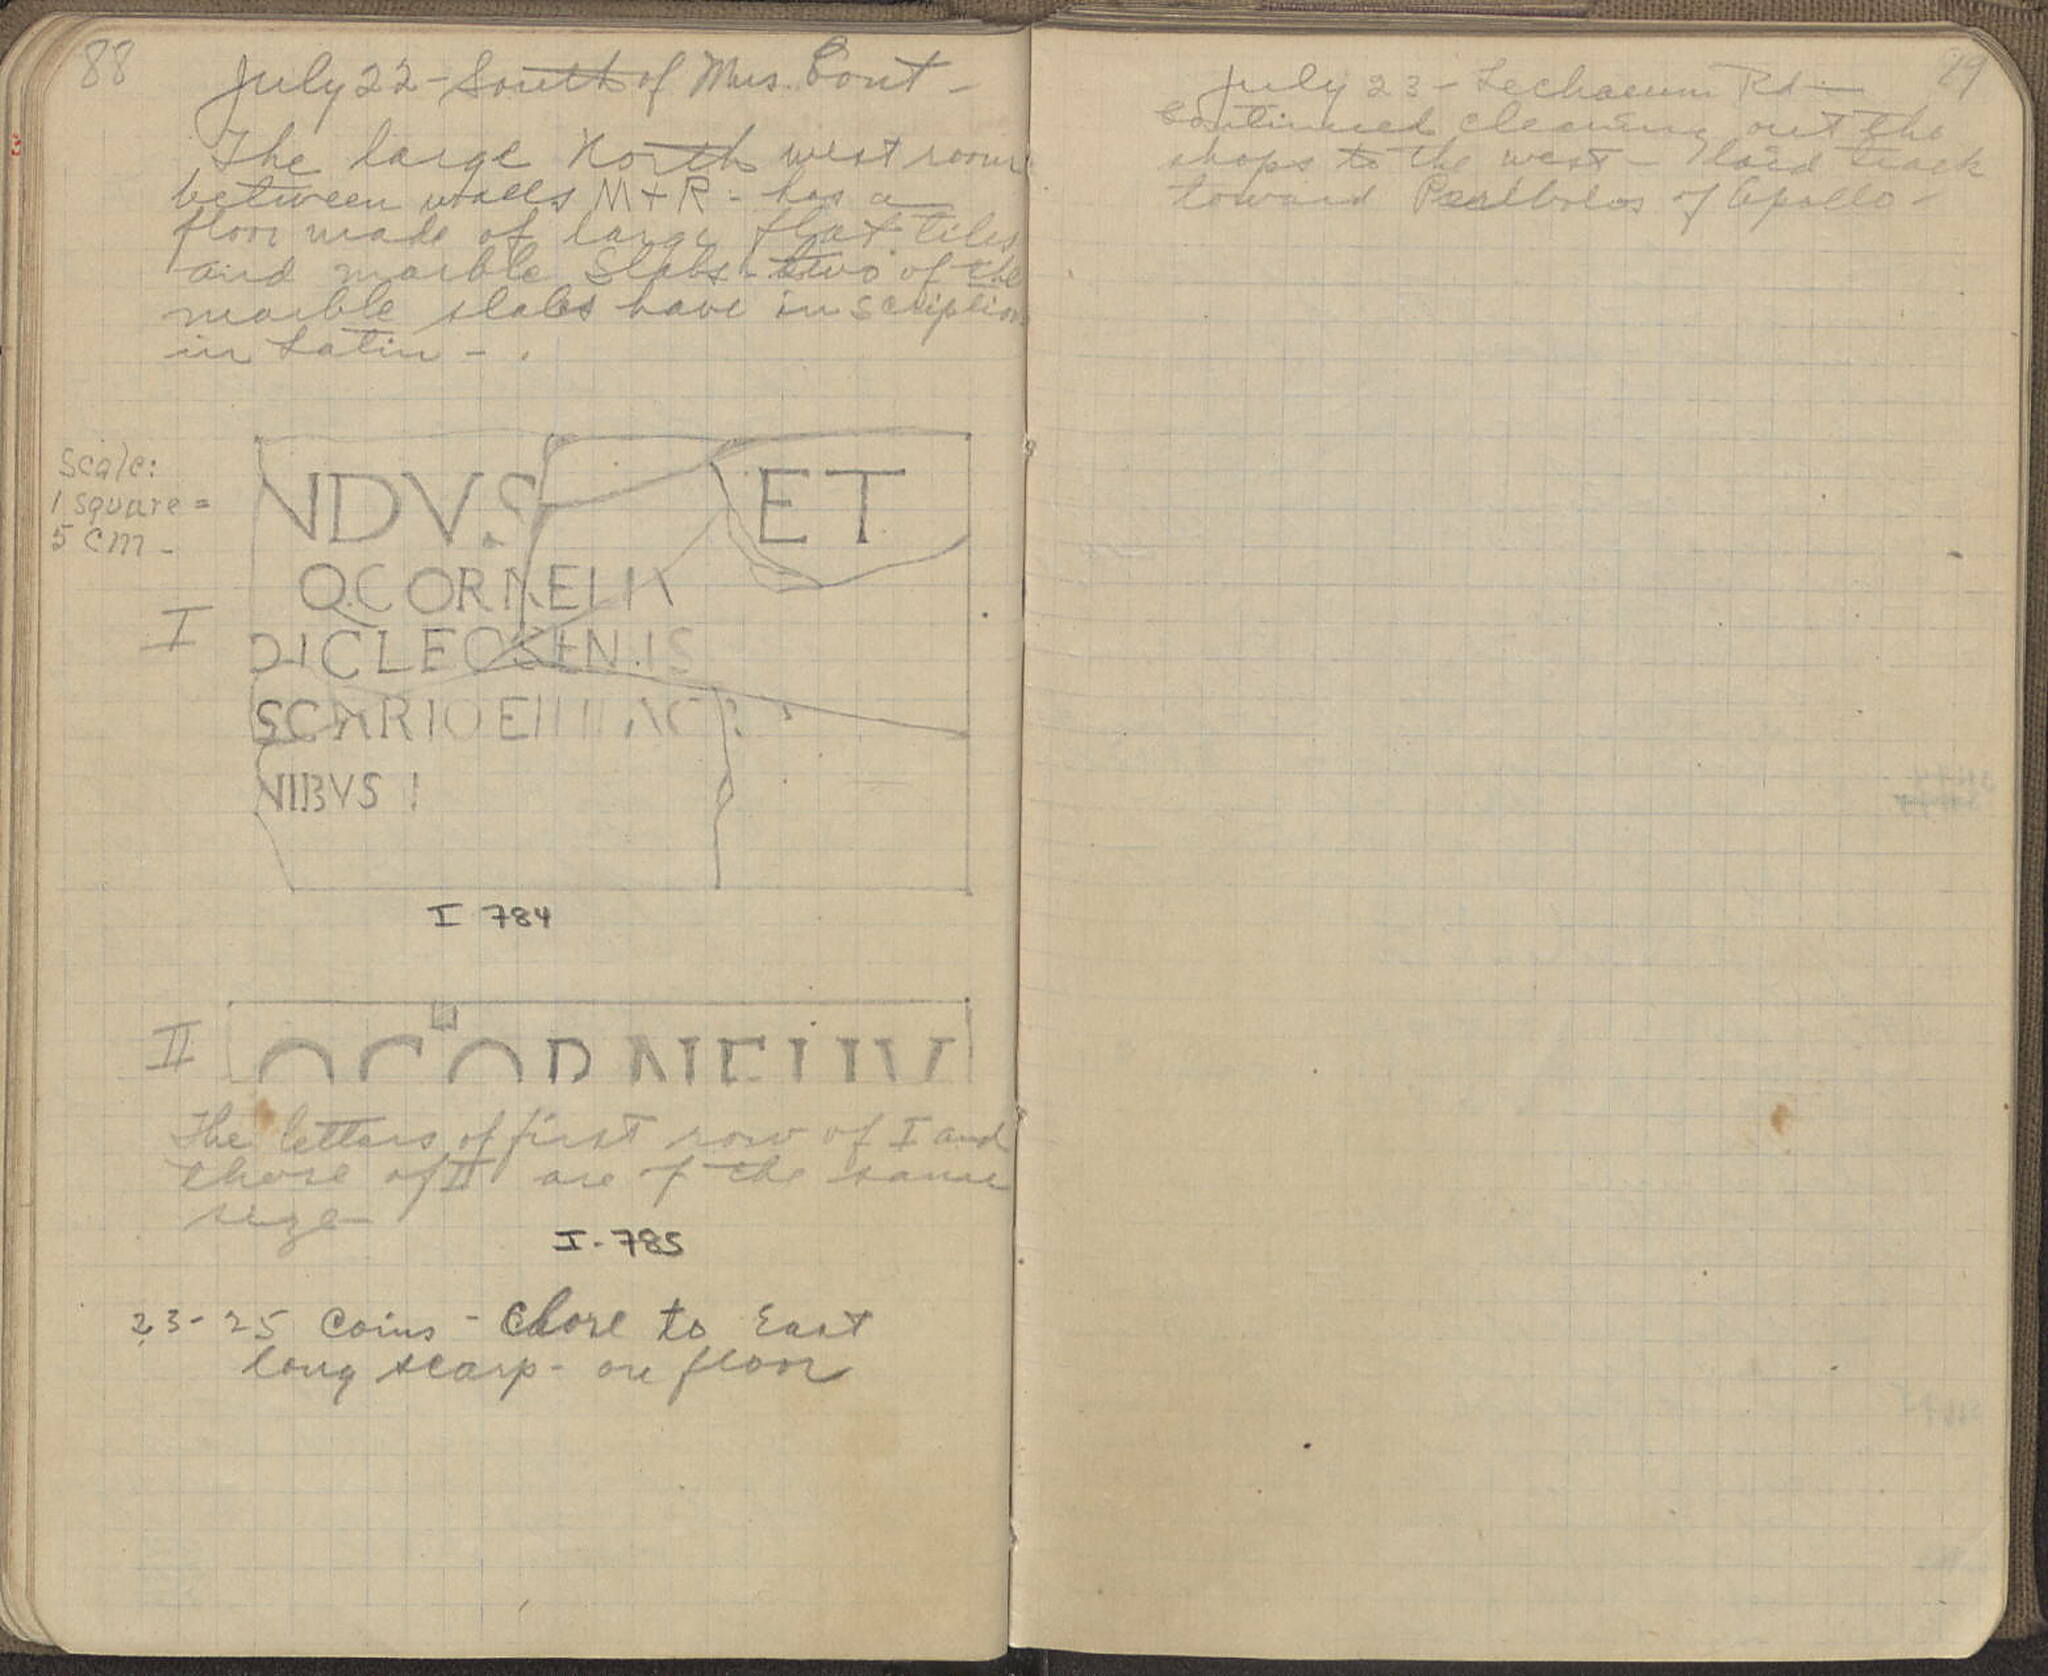 88
July 22 - South of Mus. Cont -
The large North west room
between walls M + R - has a
floor made of large flat tiles
and marble slabs - two of the
marble slabs have inscription
in Latin -
Scale:
1 square =
5 cm -
NDVS ET
I
Q CORNELI
DICLEOGENIS
SCARIO
NIBVS
I 784
II
QCORNELIV
The letters of first row of I and
those of II are of the same
size
I - 785
23 - 25 Coins - Close to East
long scarp - on floor
89
July 23 - Lechaeum Rd -
Continued cleaning out the
shops to the west - laid track
toward Peribolos of Apollo -